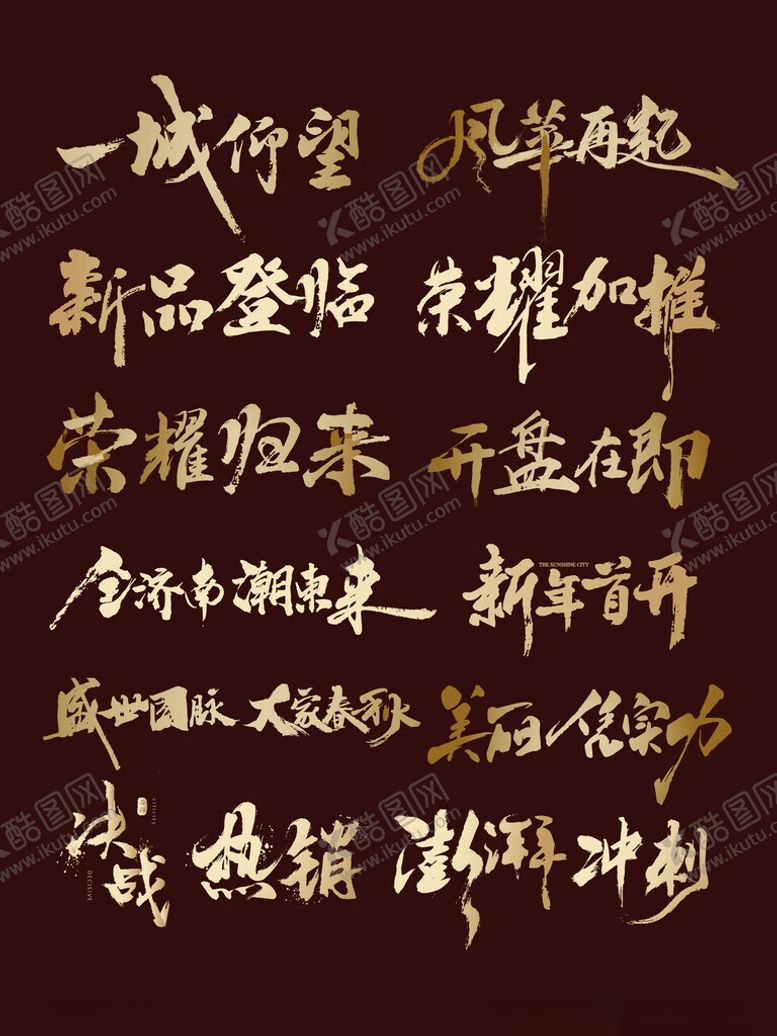 一城仰望
风萃再起
新品登临
荣耀加推
荣耀归来
开盘在即
全济南 潮東来
THE SUNSHINE CITY
新年首开
盛世国脉 大家春秋
美丽凭实力
决战
DECISIVE
热销
澎湃
冲刺
酷图网
www.ikutu.com